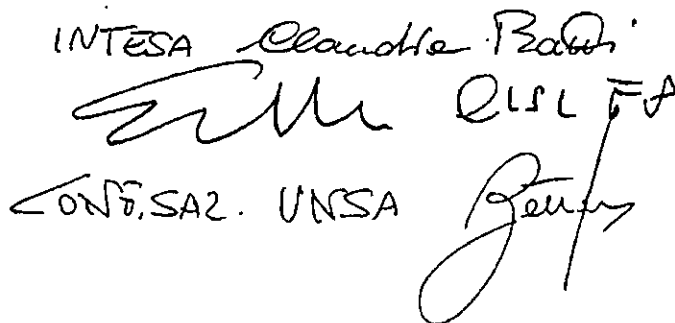 INTESA Claudia Ratti
CISL FP
CONF.SAL. UNSA